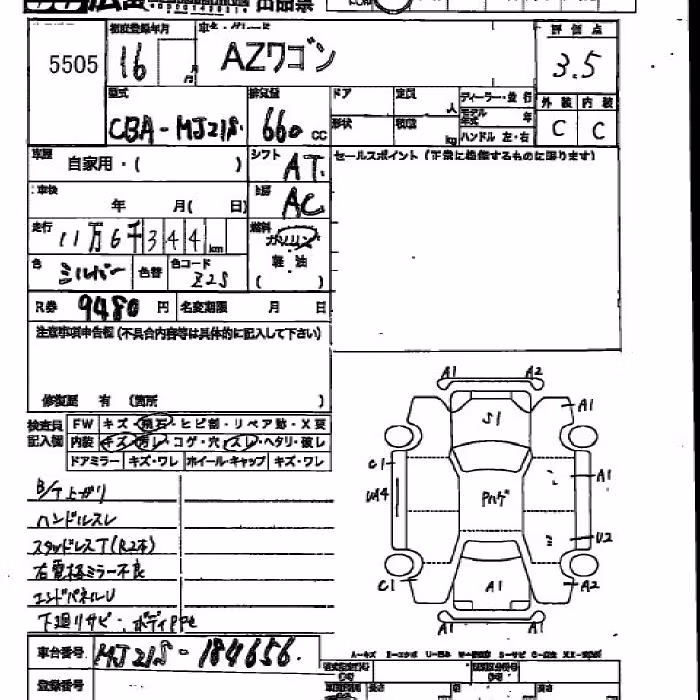 出品票
初度登録年月 車名・グレード 評価点
5505 16 月 AZワゴン 3.5
型式 排気量 ドア 定員 人 ディーラー・並行 外装 内装
CBA-MJ21S 660 cc 形状 積載 kg モデル年式 年 ハンドル 左・右 C C
車歴 自家用・( ) シフト AT セールスポイント(正常に機能するものに限ります)
車検 年 月( 日) AC
走行 11万6千344km 燃料 ガソリン
色 シルバー 色替 色コード Z2S 軽油
( )
R券 9480円 名変期限 月 日
注意事項申告欄(不具合内容等は具体的に記入して下さい)
修復歴 有 (箇所 )
検査員記入欄 FW キズ・飛石・ヒビ割・リペア跡・X要
内装 キズ・汚レ・コゲ・穴・スレ・ヘタリ・破レ
ドアミラー キズ・ワレ ホイール・キャップ キズ・ワレ
A1 A2
S1 A1
C1 A1
UA4
U2
C1 A1 A2
A1 A1
ハンドルスレ
スタッドレスT(R2本)
右電格ミラー不良
エンドパネルU
下廻りサビ・ボディ
車台番号 MJ21S-184656
登録番号
A-キズ